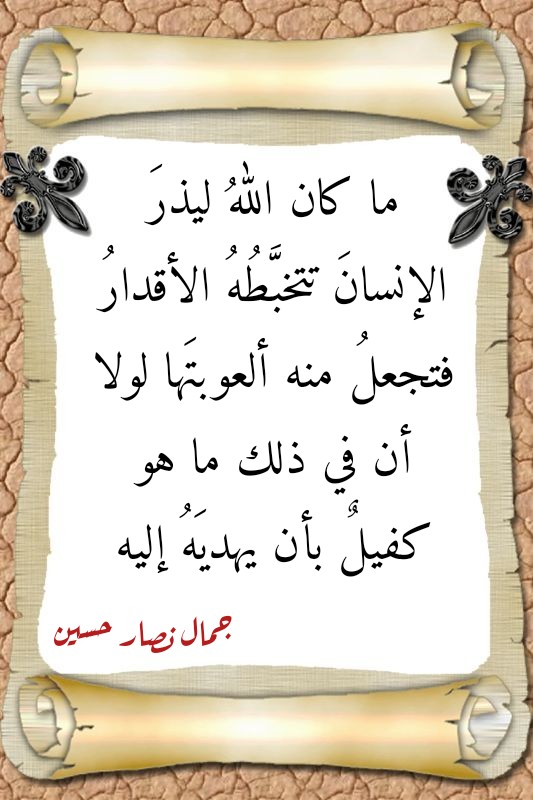 ما كان اللهُ ليذرَ
الإنسانَ تتخبَّطُهُ الأقدارُ
فتجعلُ منه ألعوبتَها لولا
أن في ذلك ما هو
كفيلٌ بأن يهديَهُ إليه
جمال نصار حسين